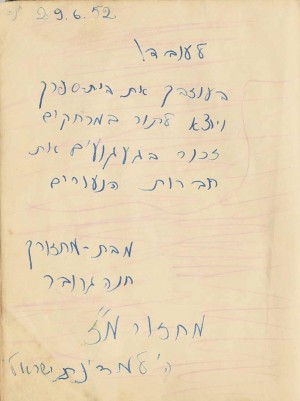 29.6.52.
לעובד!
בעוזבך את בית-ספרך
ויוצא לתור במרחקים
זכור בגעגועים את
חברות הנעורים
מבת-מחזורך
חנה גרובר
מחזור מ"ז
ה' למדינת ישראל